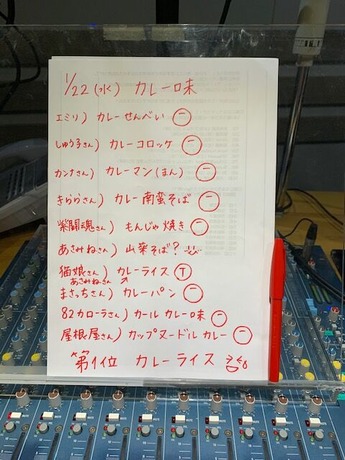 1/22(水) カレー味
エミリ) カレーせんべい ㊀
しゅう子さん) カレーコロッケ ㊀
カンナさん) カレーマン(まん) ㊀
きららさん) カレー南蛮そば ㊀
紫闘魂さん) もんじゃ焼き ㊀
あさみねさん) 山菜そば?
猫娘さん) カレーライス Ⓣ
あさみねさん
まさっちさん) カレーパン ㊀
82カローラさん) カール カレー味 ㊀
屋根屋さん) カップヌードル カレー ㊀
第1位 カレーライス